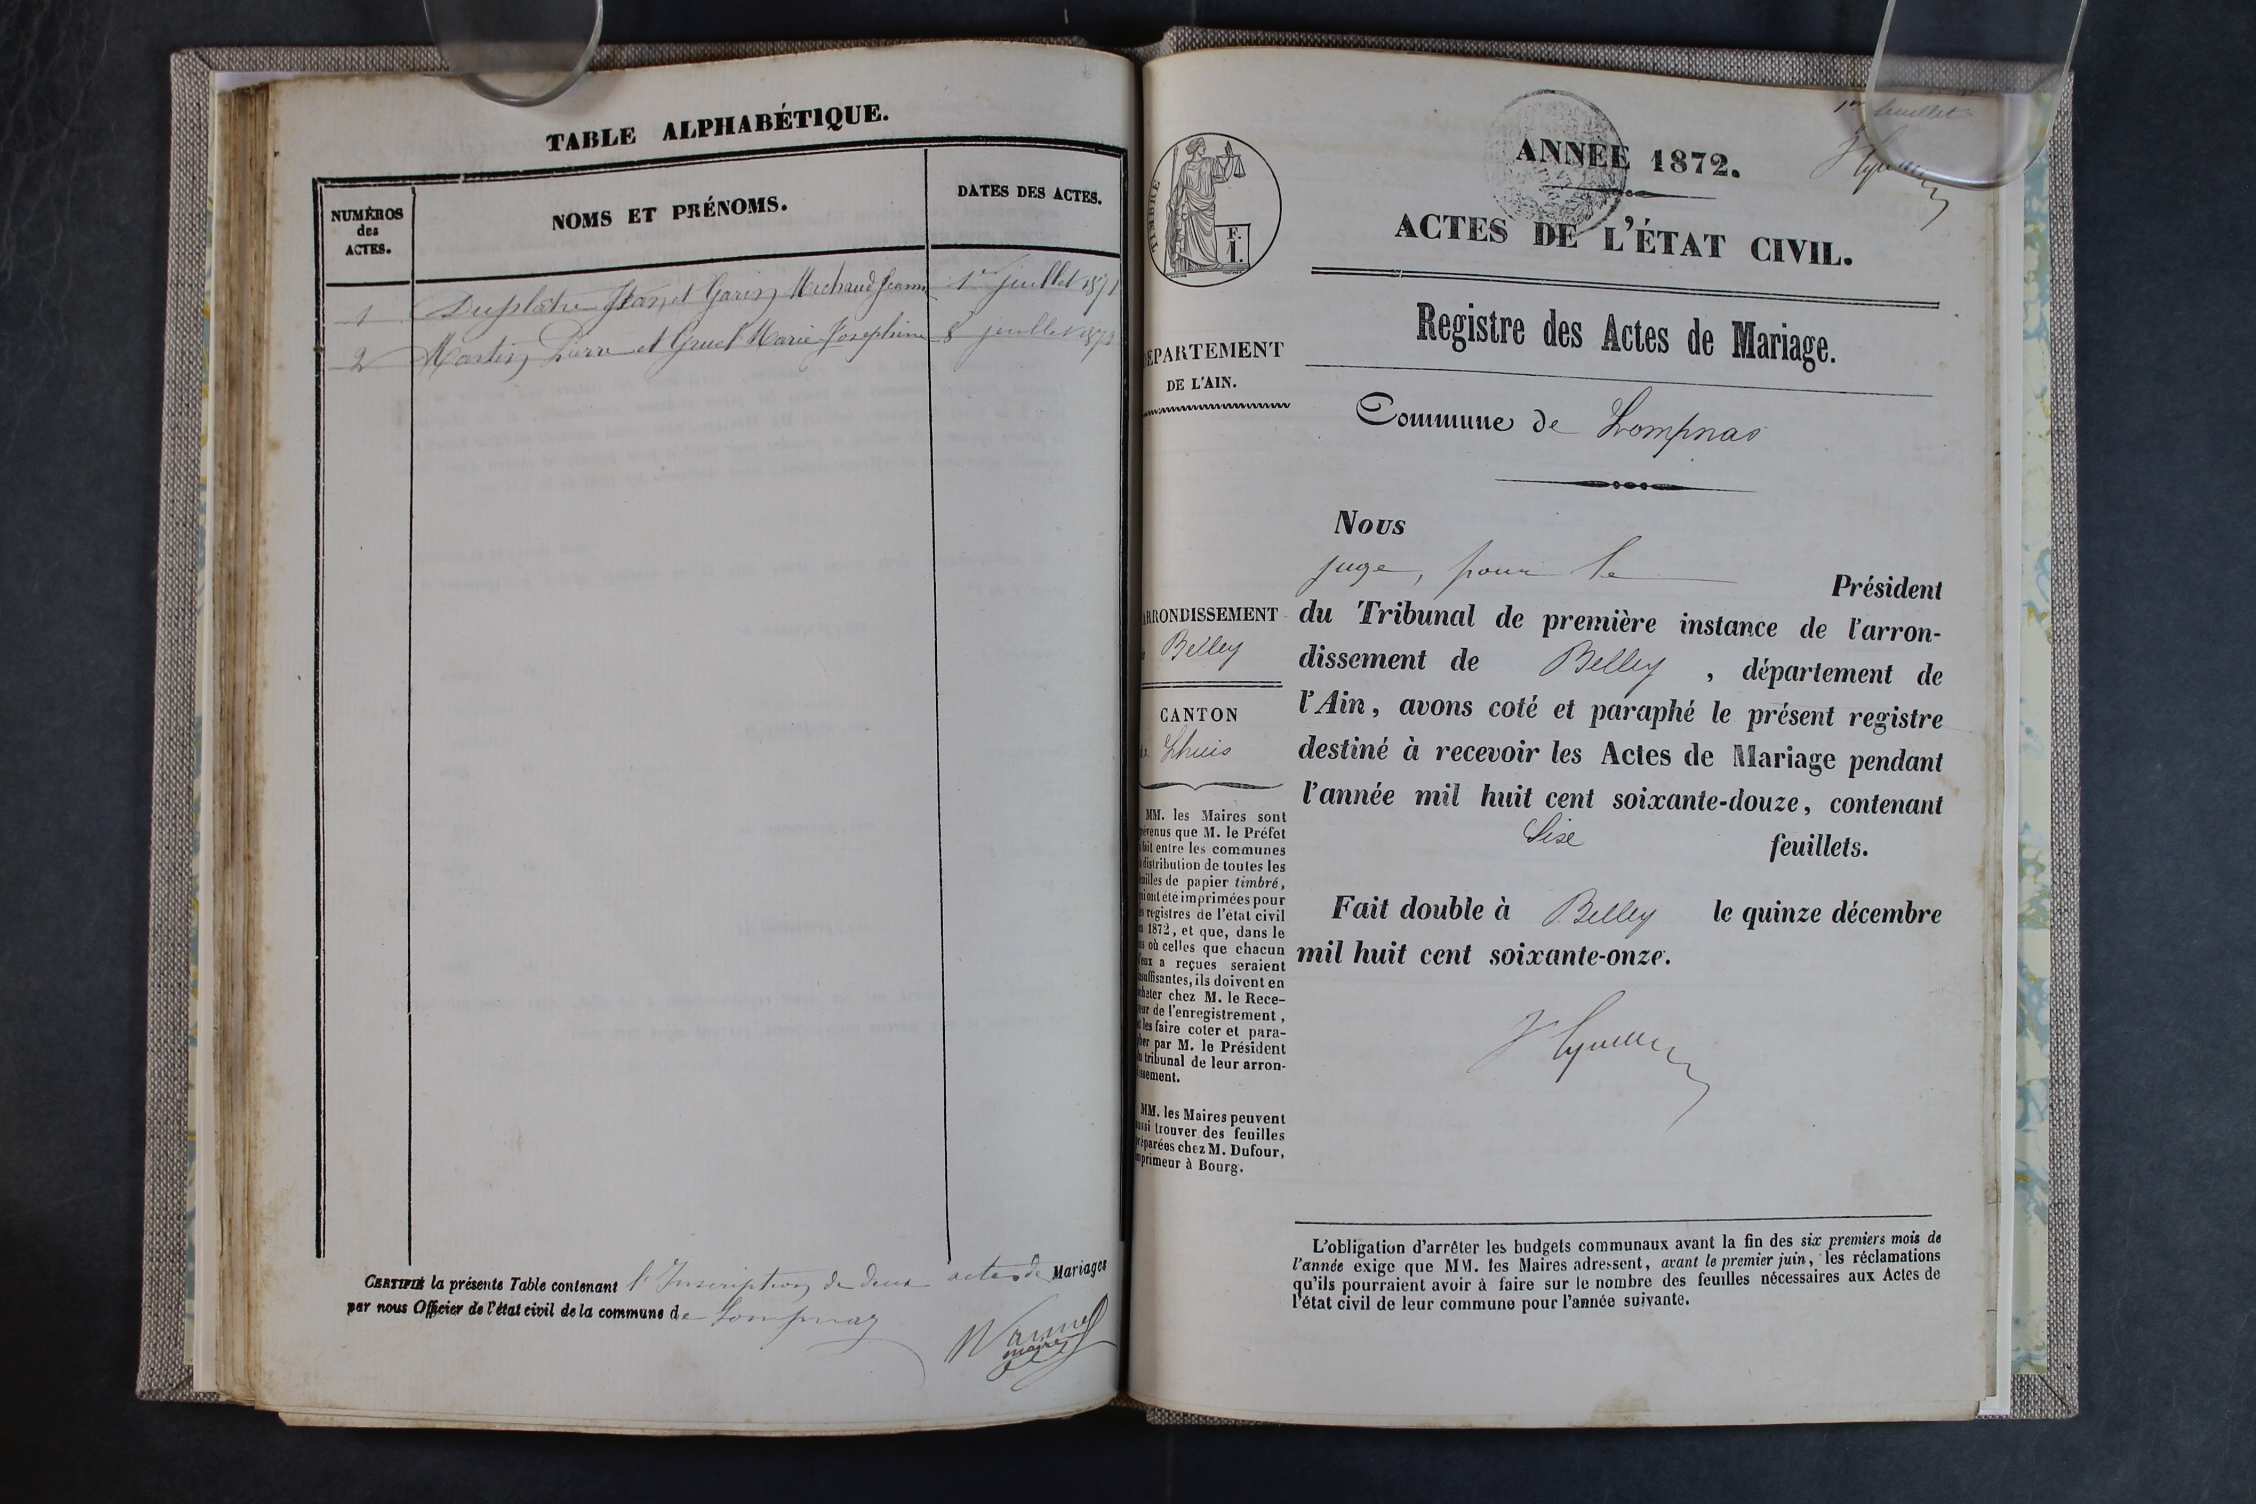 TABLE ALPHABÉTIQUE.
NUMÉROS
des
ACTES.
NOMS ET PRÉNOMS.
DATES DES ACTES.
1 Duplâtre Jean et Garin Michaud Jeanne 1er juillet 1871
2 Martin Pierre et Gruel Marie Josephine 8 juillet 1871
CERTIFIÉ la présente Table contenant l'Inscription de deux actes de Mariages
par nous Officier de l'état civil de la commune de Lompnaz
maire
1er feuillet
ANNÉE 1872.
ACTES DE L'ÉTAT CIVIL.
TIMBRE
F.
1.
Registre des Actes de Mariage.
DÉPARTEMENT
DE L'AIN.
Commune de Lompnas
Nous
juge, pour le Président
ARRONDISSEMENT
Belley
du Tribunal de première instance de l'arron-
dissement de Belley, département de
l'Ain, avons coté et paraphé le présent registre
destiné à recevoir les Actes de Mariage pendant
l'année mil huit cent soixante-douze, contenant
Six feuillets.
CANTON
de Lhuis
MM. les Maires sont
prévenus que M. le Préfet
fait entre les communes
distribution de toutes les
feuilles de papier timbré,
qui ont été imprimées pour
les registres de l'état civil
1872, et que, dans le
cas où celles que chacun
d'eux a reçues seraient
insuffisantes, ils doivent en
acheter chez M. le Rece-
veur de l'enregistrement,
et les faire coter et para-
pher par M. le Président
du tribunal de leur arron-
dissement.
MM. les Maires peuvent
aussi trouver des feuilles
préparées chez M. Dufour,
imprimeur à Bourg.
Fait double à Belley le quinze décembre
mil huit cent soixante-onze.
L'obligation d'arrêter les budgets communaux avant la fin des six premiers mois de
l'année exige que MM. les Maires adressent, avant le premier juin, les réclamations
qu'ils pourraient avoir à faire sur le nombre des feuilles nécessaires aux Actes de
l'état civil de leur commune pour l'année suivante.